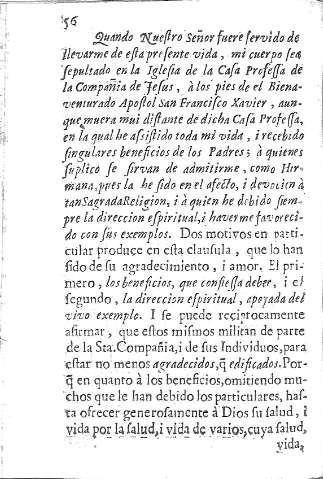 56
Quando Nuestro Señor fuere servido de
llevarme de esta presente vida, mi cuerpo sea
sepultado en la Iglesia de la Casa Professa de
la Compañia de Jesus, à los pies de el Biena-
venturado Apostol San Francisco Xavier, aun-
que muera mui distante de dicha Casa Professa,
en la qual he assistido toda mi vida, i recebido
singulares beneficios de los Padres; à quienes
suplico se sirvan de admitirme, como Her-
mana, pues la he sido en el afecto, i devocion à
tan Sagrada Religion, i à quien he debido siem-
pre la direccion espiritual, i haverme favoreci-
do con sus exemplos. Dos motivos en parti-
cular produce en esta clausula, que lo han
sido de su agradecimiento, i amor. El pri-
mero, los beneficios, que confiessa deber, i el
segundo, la direccion espiritual, apoyada del
vivo exemplo. I se puede reciprocamente
afirmar, que estos mismos militan de parte
de la Sta. Compañia, i de sus Individuos, para
estar no menos agradecidos, q̃ edificados. Por-
q̃ en quanto à los beneficios, omitiendo mu-
chos que le han debido los particulares, has-
ta ofrecer generosamente à Dios su salud, i
vida por la salud, i vida de varios, cuya salud,
vida,